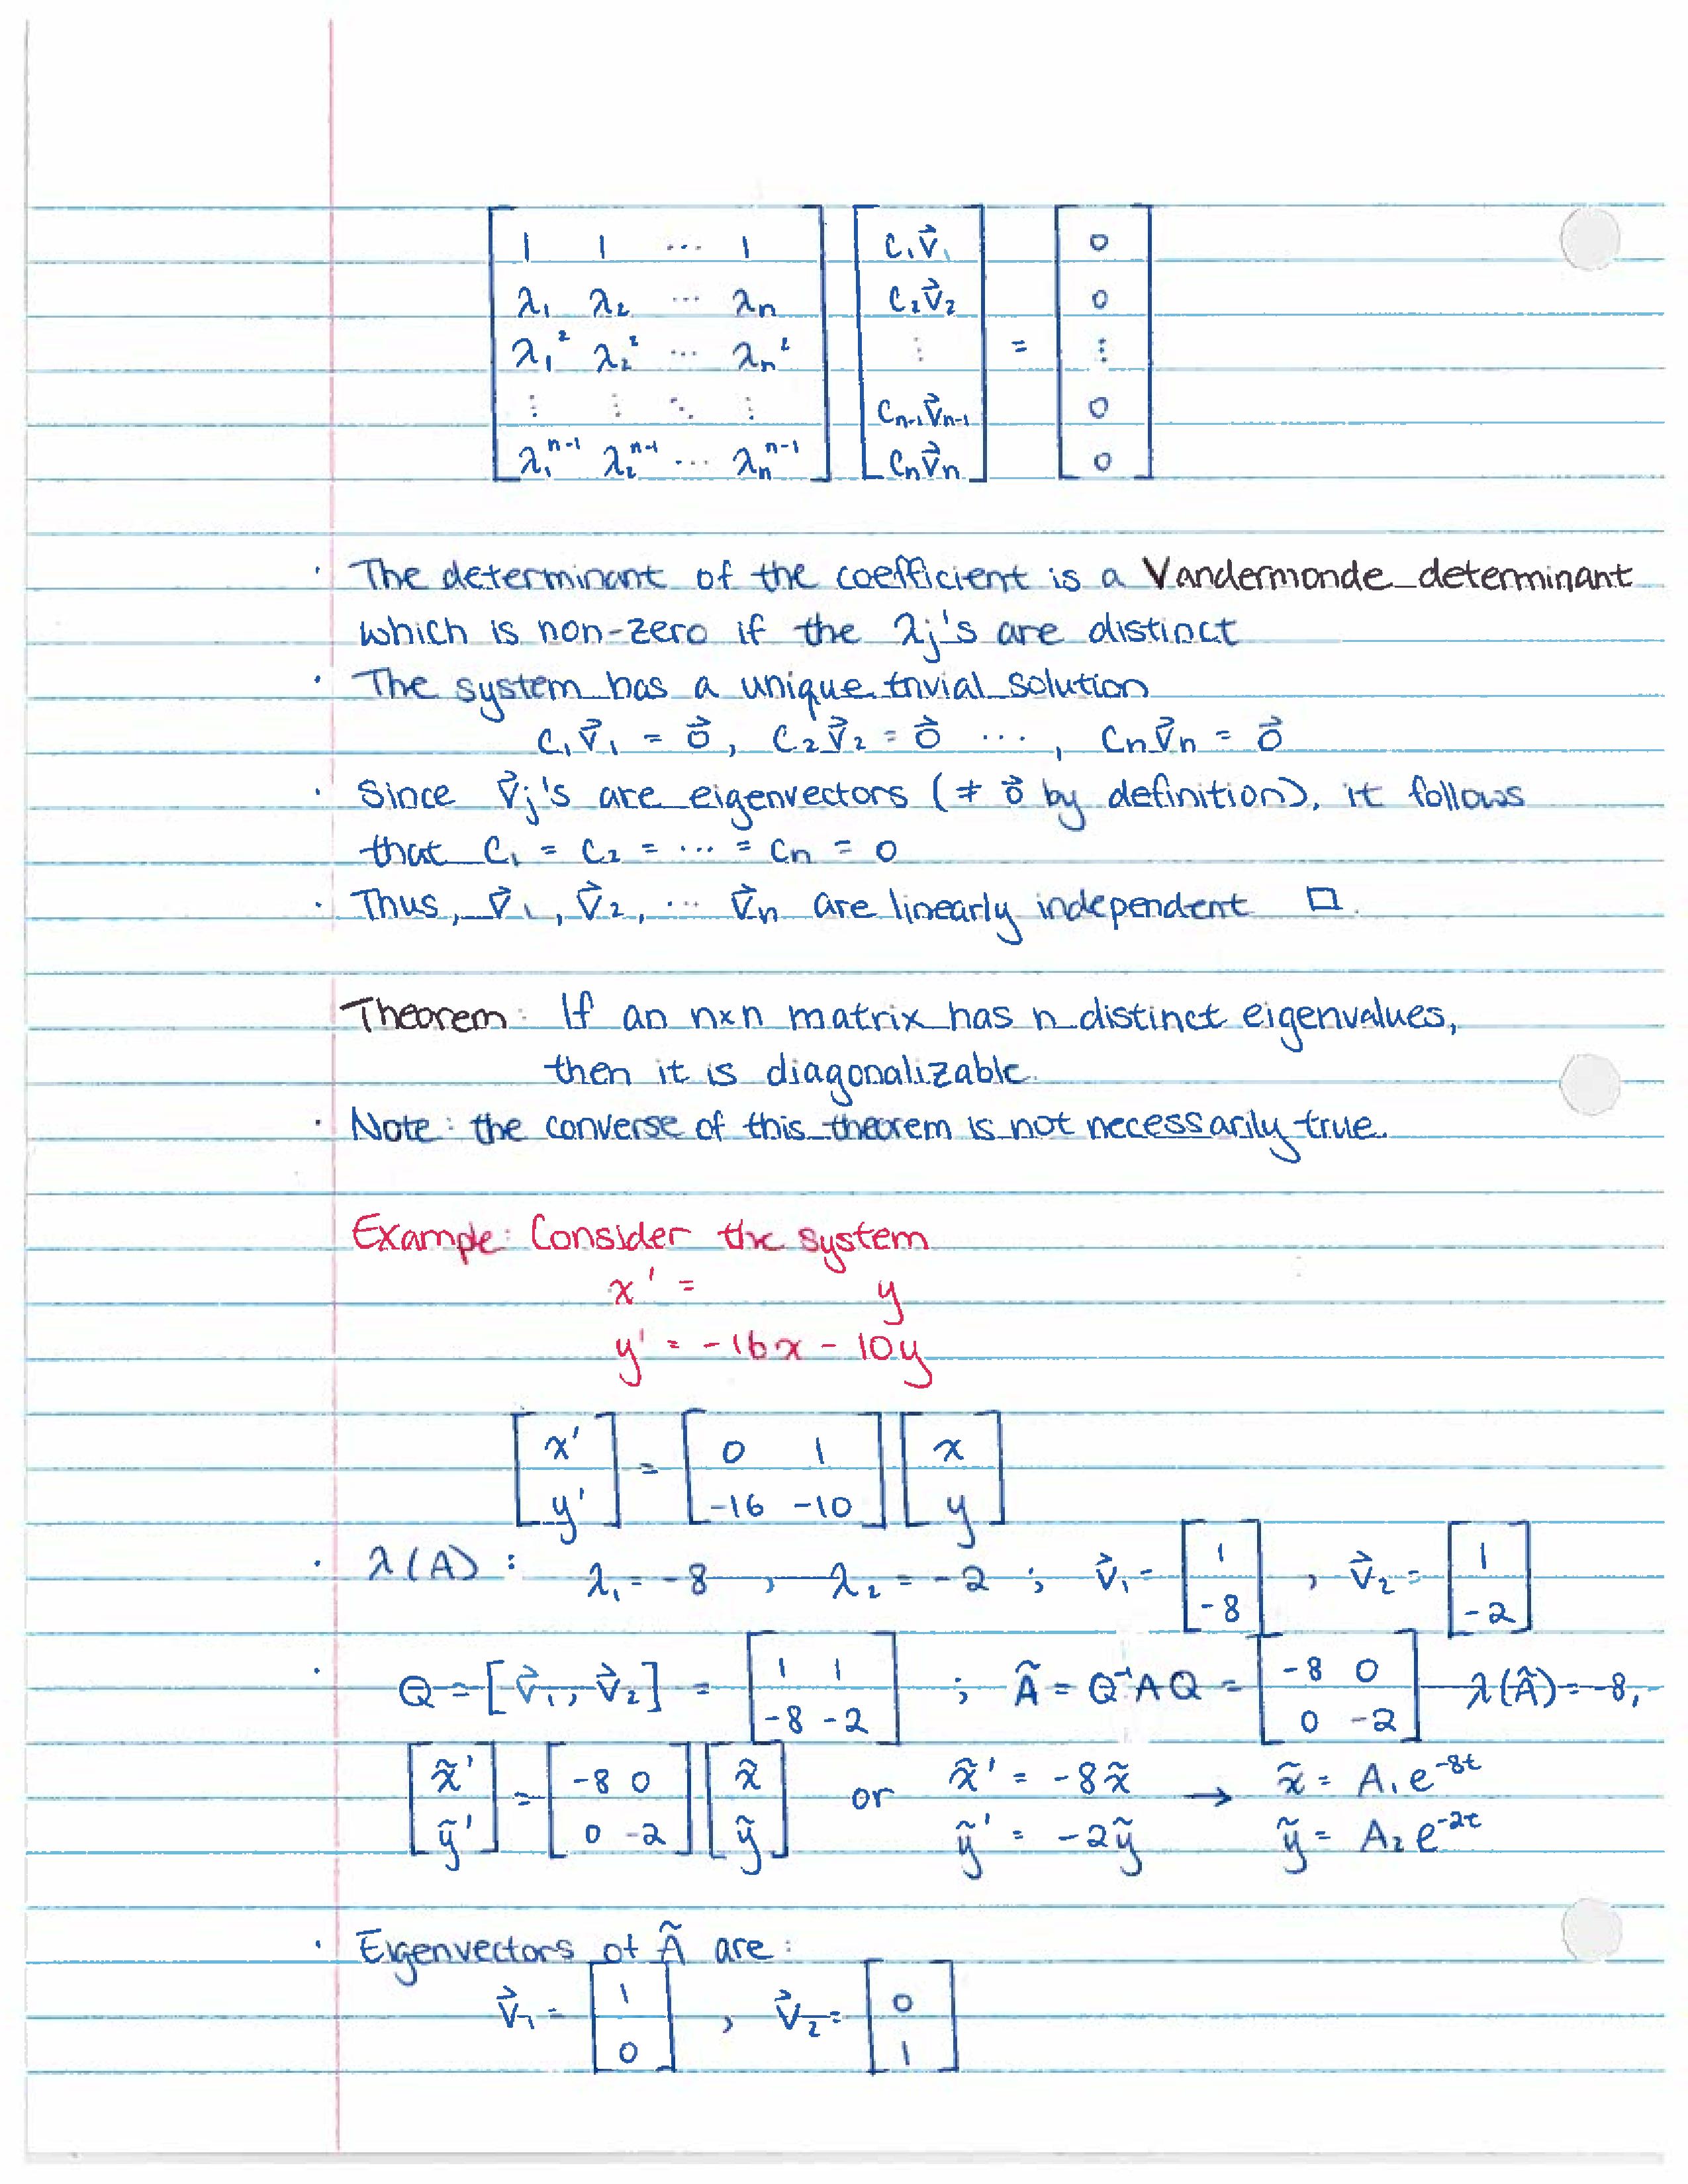 [ 1 1 ⋯ 1 ; λ₁ λ₂ ⋯ λₙ ; λ₁² λ₂² ⋯ λₙ² ; ⋮ ⋮ ⋱ ⋮ ; λ₁ⁿ⁻¹ λ₂ⁿ⁻¹ ⋯ λₙⁿ⁻¹ ] [ c₁v⃗₁ ; c₂v⃗₂ ; ⋮ ; cₙ₋₁v⃗ₙ₋₁ ; cₙv⃗ₙ ] = [ 0 ; 0 ; ⋮ ; 0 ; 0 ]
· The determinant of the coefficient is a Vandermonde determinant
which is non-zero if the λⱼ's are distinct
· The system has a unique trivial solution
c₁v⃗₁ = 0⃗, c₂v⃗₂ = 0⃗ ⋯, cₙv⃗ₙ = 0⃗
· Since v⃗ⱼ's are eigenvectors (≠ 0⃗ by definition), it follows
that c₁ = c₂ = ⋯ = cₙ = 0
· Thus, v⃗₁, v⃗₂, ⋯ v⃗ₙ are linearly independent □.
Theorem: If an n×n matrix has n distinct eigenvalues,
then it is diagonalizable.
· Note: the converse of this theorem is not necessarily true.
Example: Consider the system
x' = y
y' = -16x - 10y
[ x' ; y' ] = [ 0 1 ; -16 -10 ] [ x ; y ]
· λ(A) : λ₁ = -8 , λ₂ = -2 ; v⃗₁ = [ 1 ; -8 ] , v⃗₂ = [ 1 ; -2 ]
· Q = [v⃗₁, v⃗₂] = [ 1 1 ; -8 -2 ] ; Ã = Q⁻¹AQ = [ -8 0 ; 0 -2 ] λ(Ã) = -8, -
[ x̃' ; ỹ' ] = [ -8 0 ; 0 -2 ] [ x̃ ; ỹ ] or x̃' = -8x̃ → x̃ = A₁e^(-8t)
ỹ' = -2ỹ ỹ = A₂e^(-2t)
· Eigenvectors of Ã are:
v⃗₁ = [ 1 ; 0 ] , v⃗₂ = [ 0 ; 1 ]